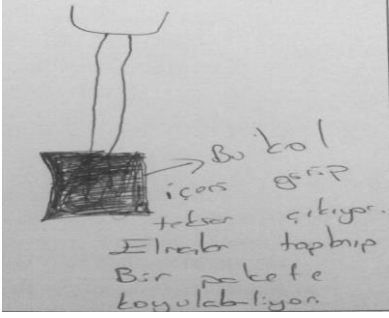 Bu kol
içeri girip
tekrar çıkıyor.
Elmaları toplayıp
Bir pakete
koyulabiliyor.